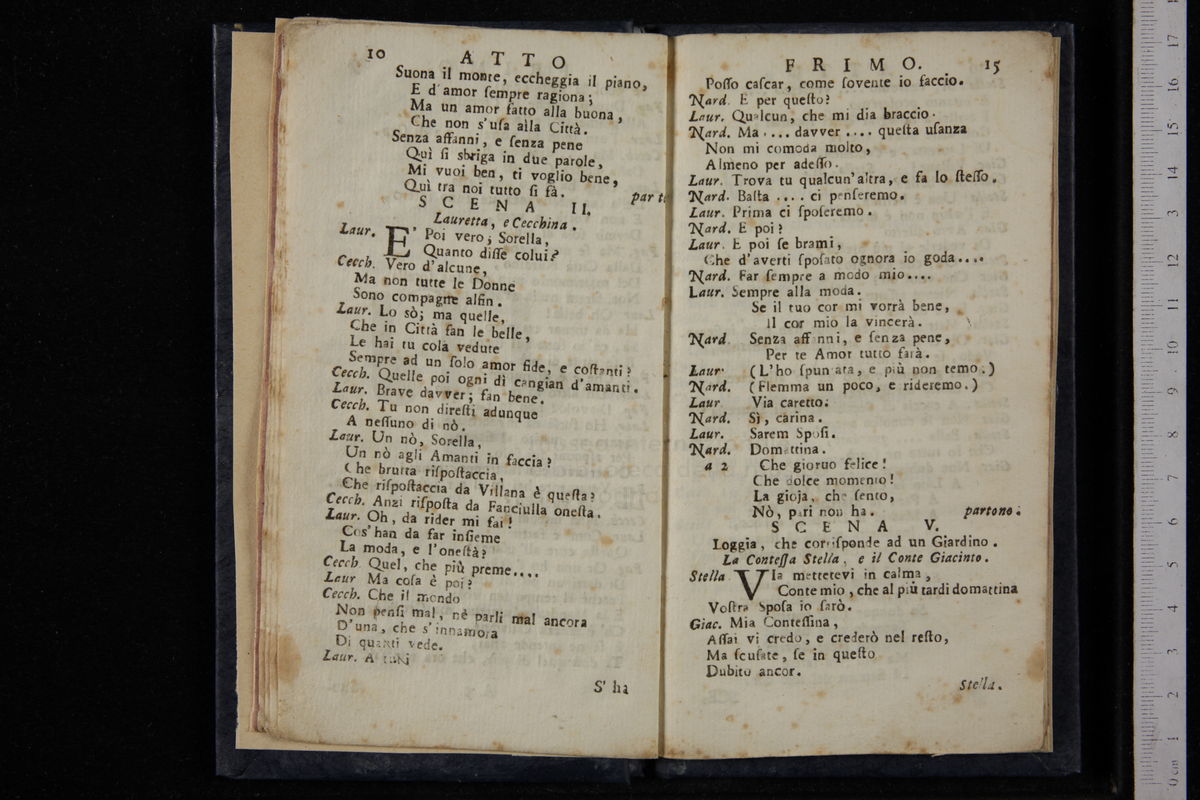 10 ATTO
Suona il monte, eccheggia il piano,
E d'amor ſempre ragiona;
Ma un amor fatto alla buona,
Che non s'uſa alla Città.
Senza affanni, e ſenza pene
Quì ſi sbriga in due parole,
Mi vuoi ben, ti voglio bene,
Quì tra noi tutto ſi fà. part
SCENA II.
Lauretta, e Cecchina.
Laur. E' Poi vero, Sorella,
Quanto diſſe colui?
Cecch. Vero d'alcune,
Ma non tutte le Donne
Sono compagne alfin.
Laur. Lo sò; ma quelle,
Che in Città fan le belle,
Le hai tu colà vedute
Sempre ad un ſolo amor fide, e coſtanti?
Cecch. Quelle poi ogni dì cangian d'amanti.
Laur. Brave davver; fan bene.
Cecch. Tu non direſti adunque
A neſſuno di nò.
Laur. Un nò, Sorella,
Un nò agli Amanti in faccia?
Che brutta riſpoſtaccia,
Che riſpoſtaccia da Villana è queſta?
Cecch. Anzi riſpoſta da Fanciulla oneſta.
Laur. Oh, da rider mi fai!
Cos'han da far inſieme
La moda, e l'oneſtà?
Cecch. Quel, che più preme....
Laur Ma coſa è poi?
Cecch. Che il mondo
Non penſi mal, nè parli mal ancora
D'una, che s'innamora
Di quanti vede.
Laur. A tuki
S' ha
FRIMO. 15
Poſſo caſcar, come ſovente io faccio.
Nard. E per queſto?
Laur. Qualcun, che mi dia braccio.
Nard. Ma .... davver .... queſta uſanza
Non mi comoda molto,
Almeno per adeſſo.
Laur. Trova tu qualcun'altra, e fa lo ſteſſo.
Nard. Baſta .... ci penſeremo.
Laur. Prima ci ſpoſeremo.
Nard. E poi?
Laur. E poi ſe brami,
Che d'averti ſpoſato ognora io goda....
Nard. Far ſempre a modo mio....
Laur. Sempre alla moda.
Se il tuo cor mi vorrà bene,
Il cor mio la vincerà.
Nard. Senza affanni, e ſenza pene,
Per te Amor tutto farà.
Laur. (L'ho ſpuntata, e più non temo.)
Nard. (Flemma un poco, e rideremo.)
Laur. Via caretto:
Nard. Sì, carina.
Laur. Sarem Spoſi.
Nard. Domattina.
a 2 Che gioruo felice!
Che dolce momento!
La gioja, che ſento,
Nò, pari non ha. partono.
SCENA V.
Loggia, che corriſponde ad un Giardino.
La Conteſſa Stella, e il Conte Giacinto.
Stella. VIa mettetevi in calma,
Conte mio, che al più tardi domattina
Voſtra Spoſa io ſarò.
Giac. Mia Conteſſina,
Aſſai vi credo, e crederò nel reſto,
Ma ſcuſate, ſe in queſto
Dubito ancor.
Stella.